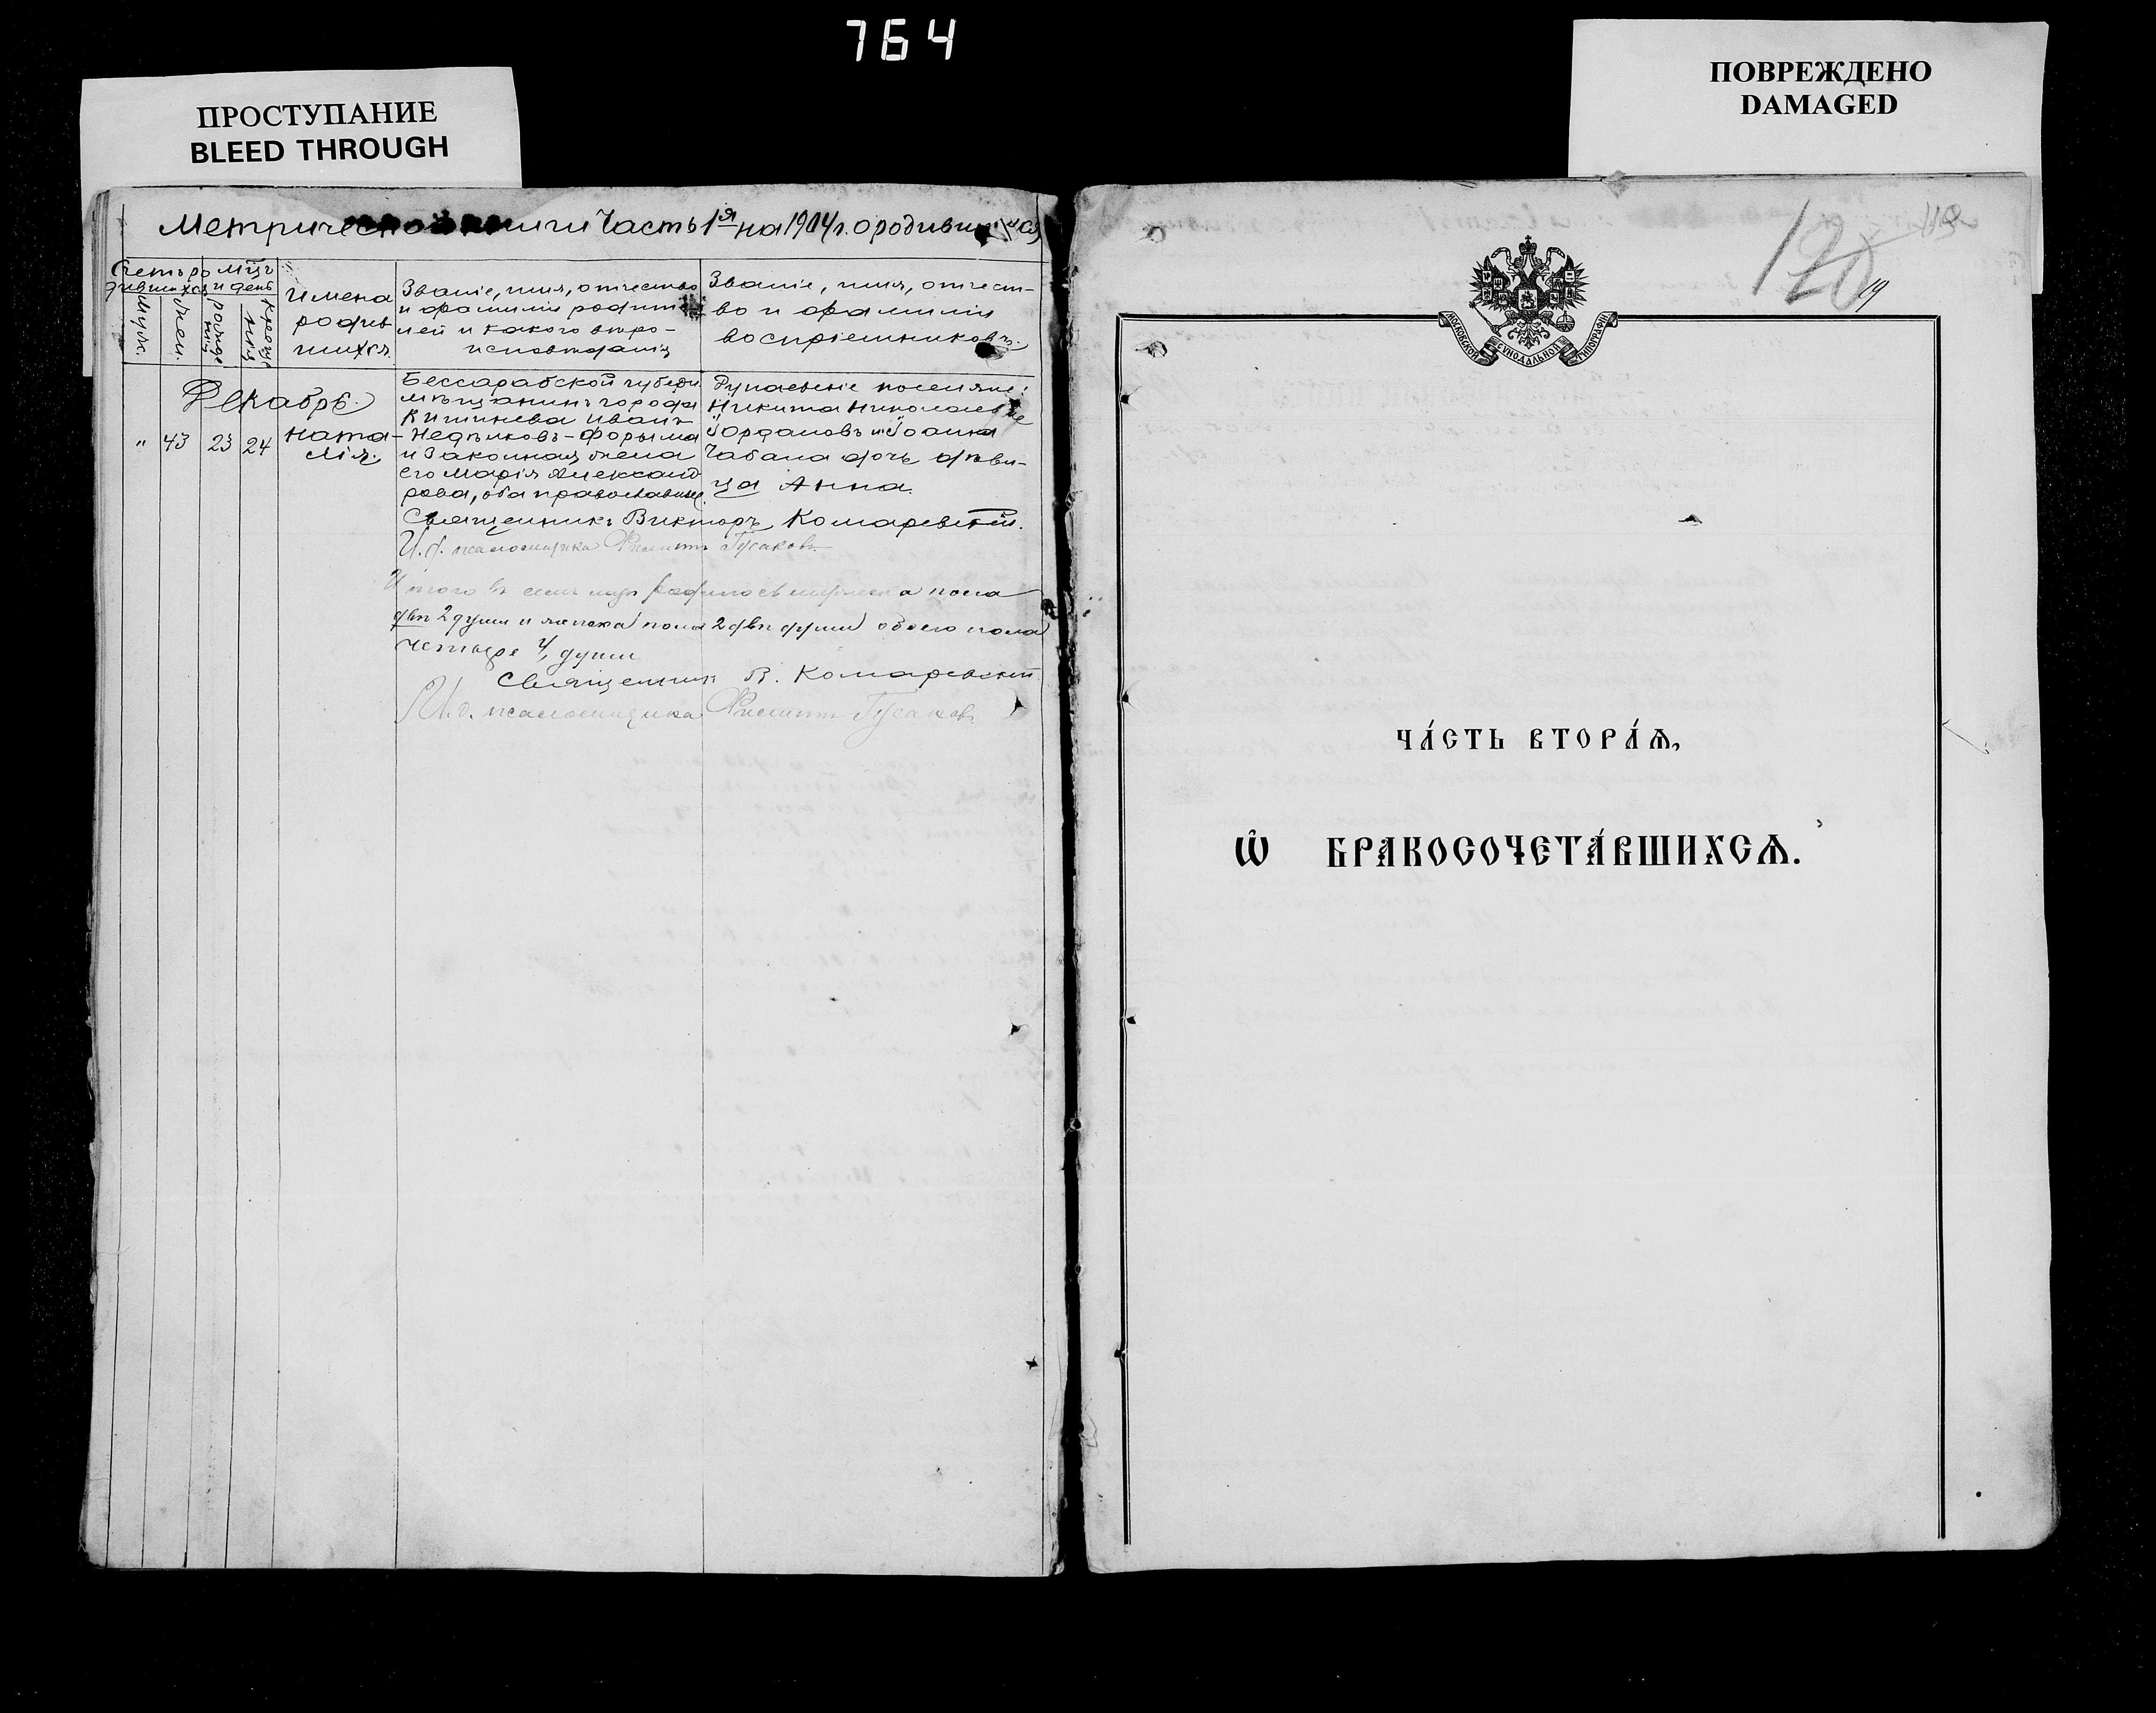 764
ПРОСТУПАНИЕ
BLEED THROUGH
ПОВРЕЖДЕНО
DAMAGED
Метрической книги Часть 1я на 1904 г. о родившихся
Счетъ ро
дившихся
Муж.
Жен.
Мцъ
и день
рожде
нія
креще
нія
Имена
родив
шихся
Званіе, имя, отчество
и фамилія родите
лей и какого вѣро-
исповѣданія
Званіе, имя, отчест-
во и фамилія
воспріемниковъ.
Декабрь.
" 43 23 24
Ната-
лія.
Бессарабской губерн
мѣщанинъ города
Кишинева Иванъ
Недѣлковъ-Форыма
и законная жена
его Марія Александ
рова, оба православные.
поселяне:
Никита Николаевъ
Іордановъ и Іоанна
Чабана дочь дѣви-
ца Анна.
Священникъ Викторъ Комаревскій.
И. д. псаломщика Филиппъ Гусаковъ
Итого въ семъ мцѣ родилось мужеска пола
двѣ 2 души и женска пола 2 двѣ души обоего пола
четыре 4, души
Священникъ В. Комаревскій
И. д. псаломщика Филиппъ Гусаковъ
120
19
МОСКОВСКОЙ СѴНОДАЛЬНОЙ ТИПОГРАФІИ
ЧА́СТЬ ВТОРА́Ѧ,
Ѽ БРАКОСОЧЕТА́ВШИХСѦ.